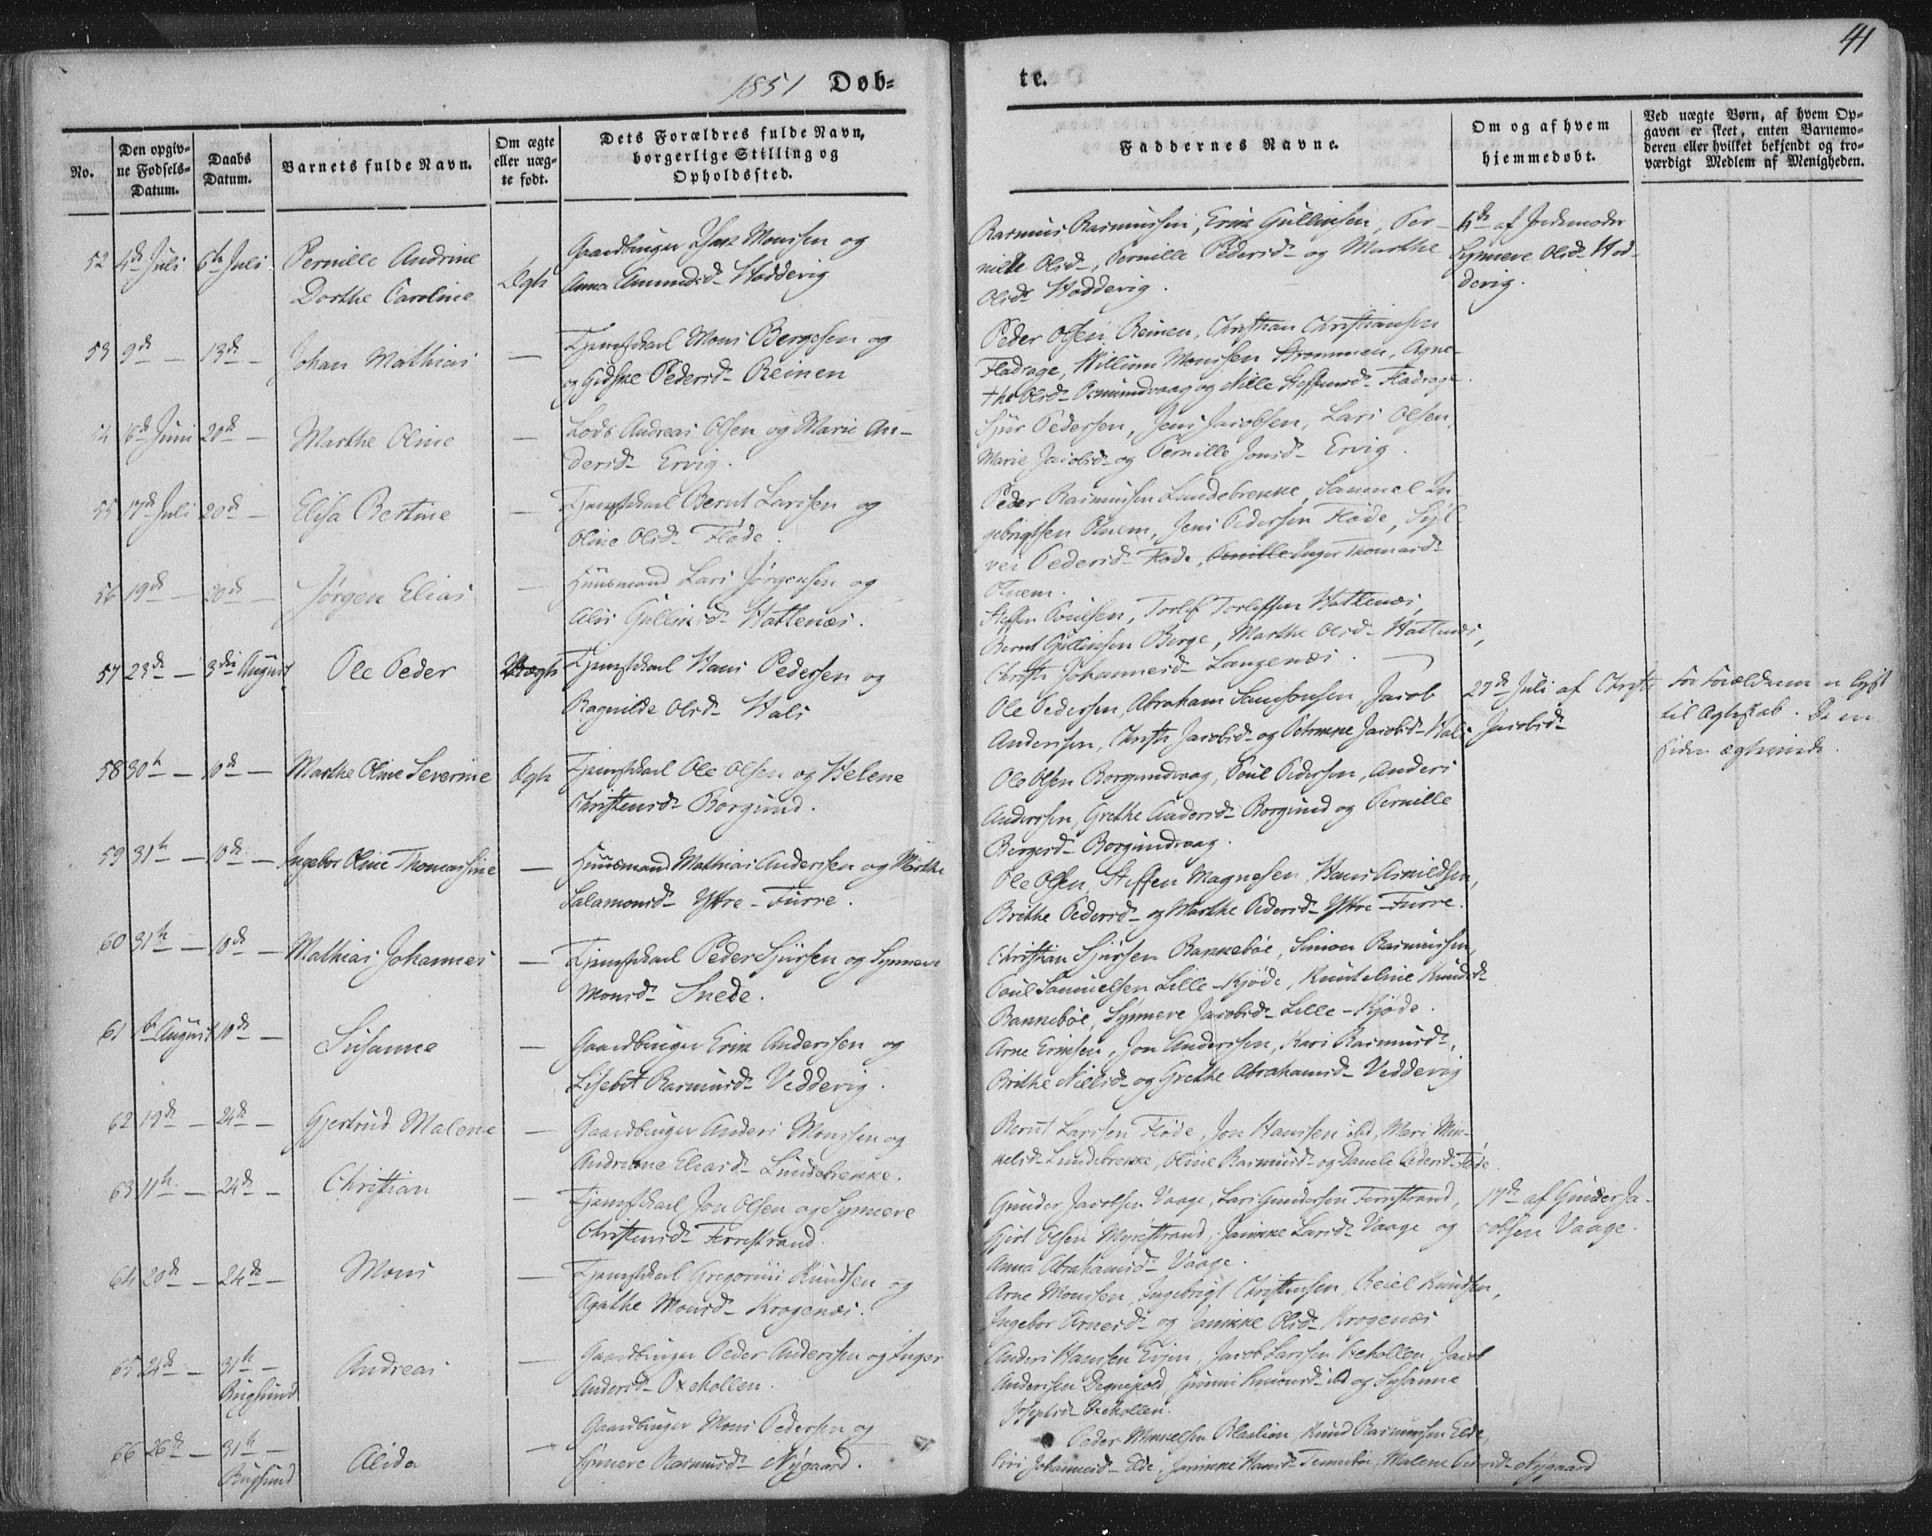 1851 Døb-
te.
41
No.
Den opgiv-
ne Fødsels-
Datum.
Daabs
Datum.
Barnets fulde Navn.
Om ægte
eller uæg-
te født.
Dets Forældres fulde Navn,
borgerlige Stilling og
Opholdssted.
Faddernes Navne.
Om og af hvem
hjemmedøbt.
Ved uægte Børn, af hvem Op-
gaven er skeet, enten Barnemo-
deren eller hvilket bekjendt og tro-
værdigt Medlem af Menigheden.
52 4de Juli 6te Juli Pernille Andrine
Dorthe Caroline
Ægte
Gaardbruger Monssen og
Anna Amundsd- Hoddevig
Rasmus Rasmussen, Erik Gullinsen, Per-
nille Olsd-, Pernille Pedersd- og Marthe
Olsd- Hoddevig.
af Jordemoder
Synneve Olsd- Hod-
devig.
53 9de — 13de — Johan Mathias —
Tjenestekarl Mons Bergesen og
og Gidske Pedersd- Reinen
Peder Olsen Reinen, Christian Christiansen
Fladrage, Willum Monssen Strømmen, Agne-
the Olsd- Osmundvaag og Nille Steffensd- Fladrage.
54 6te Juni 20de — Marthe Oline —
Lods Andreas Olsen og Marie An-
dersd- Ervig.
Sjur Pedersen, Jens Jacobsen, Lars Olsen,
Marie Jacobsd- og Pernille Jonsd- Ervig.
55 17de Juli 20de — Elisa Bertine —
Tjenestekarl Bernt Larssen og
Oline Olsd- Fløde.
Peder Rasmussen Lundebrekke, Sammel In
gebrigtsen Otnem, Jens Pedersen Fløde, Syl-
vei Pedersd- Fløde, Pernille Inger Thomasd-
Otnem.
56 19de — 20de — Jørgen Elias —
Huusmand Lars Jørgensen og
Alis Gullinsd- Hatlenæs.
Steffen Poulsen, Torlef Torlefsen Hatlenæs,
Bernt Gullinsen Berge, Marthe Olsd- Hatlenæs,
Christi Johannesd- Langenæs.
57 23de — 3die August Ole Peder Uægte
Tjenestekarl Hans Pedersen og
Ragnilde Olsd- Hals
Ole Pedersen, Abraham Samsonsen, Jacob
Anderssen, Christi Jacobsd- og Petrikke Jacobsd- Hals
27de Juli af Christi
Jacobsd-
For Forældrene er lyst
til Ægteskab. De ere
siden ægteviede.
58 30te — 10de — Marthe Oline Severine Ægte
Tjenestekarl Ole Olsen og Helene
Christensd- Borgund.
Ole Olsen Borgundvaag, Poul Pedersen, Anders
Anderssen, Grethe Andersd- Borgund og Pernille
Bergesd- Borgundvaag.
59 31te — 10de — Ingebor Oline Thomassine —
Huusmand Mathias Anderssen og Marthe
Salamonsd- Yttre-Furre.
Ole Olsen, Steffen Magnesen, Hans Arnildsen,
Brithe Pedersd- og Marthe Pedersd- Yttre-Furre.
60 31te — 10de — Mathias Johannes —
Tjenestekarl Peder Sjursen og Synneve
Monsd- Snede.
Christian Sjursen Bannebøe, Simon Rasmussen,
Poul Samuelsen Lille-Kjøde, Knuteline Knudsd-
Bannebøe, Synneve Jacobsd- Lille-Kjøde.
61 August 10de — Susanne —
Gaardbruger Erik Anderssen og
Lisebet Rasmusd- Veddevig.
Arne Eriksen, Jon Anderssen, Kari Rasmusd-,
Brithe Nielsd- og Grethe Abrahamsd- Veddevig
62 19de — 24de — Gjertrud Malene —
Gaardbruger Anders Monssen og
Andrikne Eliasd- Lundebrekke.
Bernt Larssen Fløde, Jon Hanssen ibd, Mari Mik-
kelsd- Lundebrekke, Oline Rasmusd- og Danele Pedersd- Fløde.
63 11te — 24de — Christian —
Tjenestekarl Jon Olsen og Synneve
Christensd- Ferrestrand.
Gunder Jacobsen Vaage, Lars Gundersen Ferrestrand,
Gjert Olsen Myrestrand, Janikke Larsd- Vaage og
Anna Abrahamsd- Vaage.
17de af Gunder Ja-
cobsen Vaage.
64 20de — 24de — Mons —
Tjenestekarl Gregorius Knudsen og
Agathe Monsd- Krogenæs.
Arne Monssen, Ingebrigt Christensen, Reiel Knudsen,
Ingebor Arnesd- og Janikke Olsd- Krogenæs
65 24de — 31te —
Rugsund
Andreas —
Gaardbruger Peder Anderssen og Inger
Andersd- Oxekollen.
Anders Hanssen Eyen, Jacob Larssen Oxekollen, Jacob
Anderssen Degnepold, Gunni Simonsd- ibd og Susanne
Josephsd- Oxekollen.
66 26de — 31te —
Rugsund
Alida —
Gaardbruger Mons Pedersen og
Synneve Rasmusd- Nygaard.
Peder Mikkelsen Blaalien, Knud Rasmussen Elde,
Siri Johannesd- Elde, Janikke Hansd- Tennebøe, Malene Pedersd- Nygaard